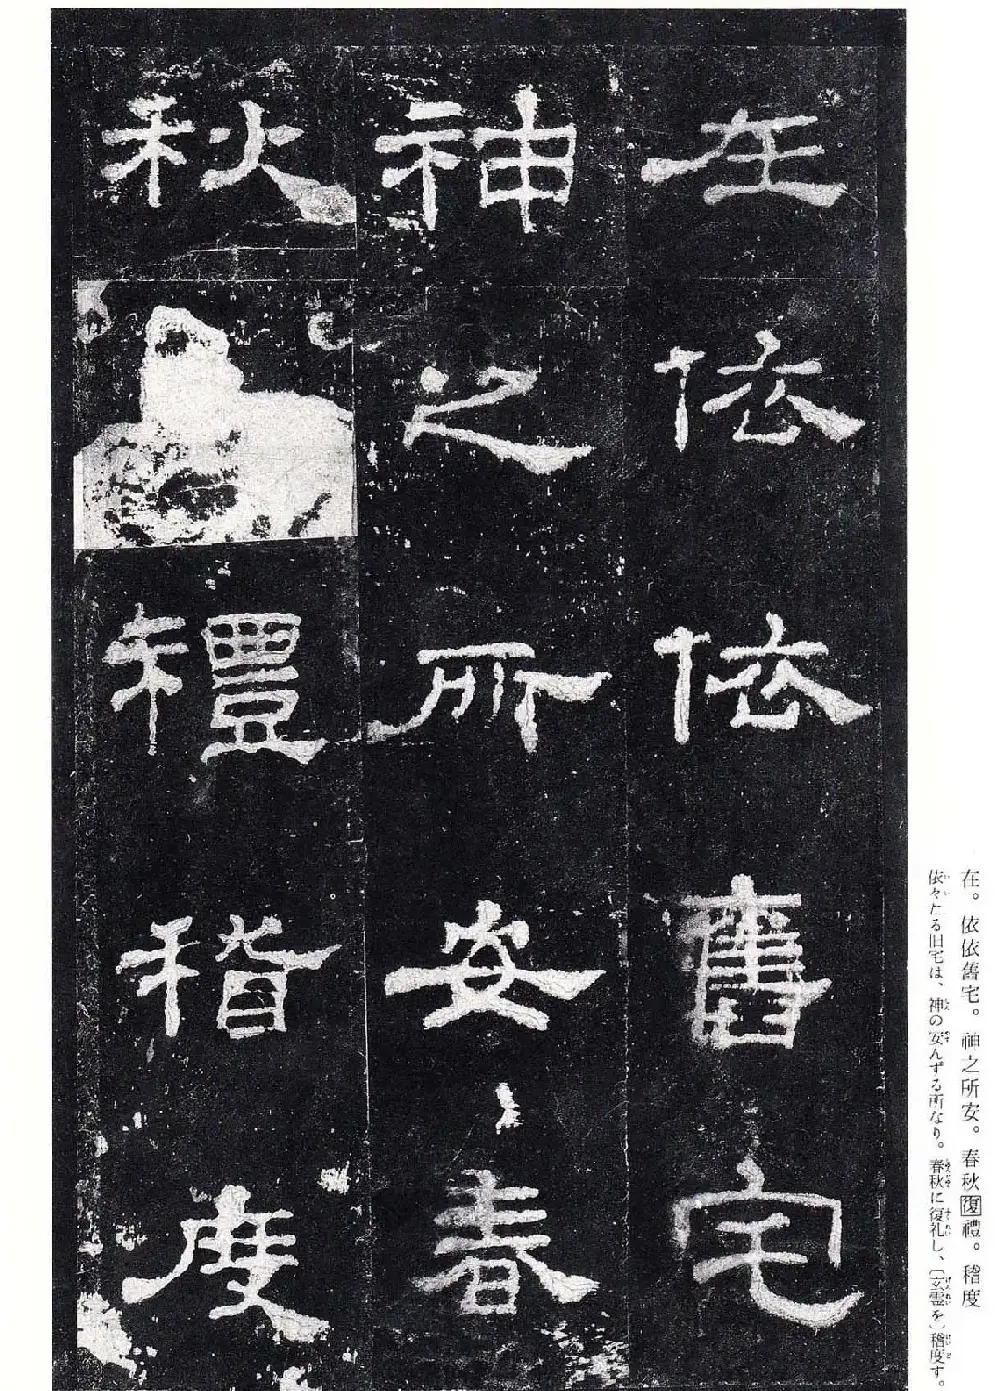 在依依舊宅
神之所安春
秋禮稽度
在。依依舊宅。神之所安。春秋復禮。稽度
依々たる旧宅は、神の安んずる所なり。春秋に復礼し、〔玄霊を〕稽度す。